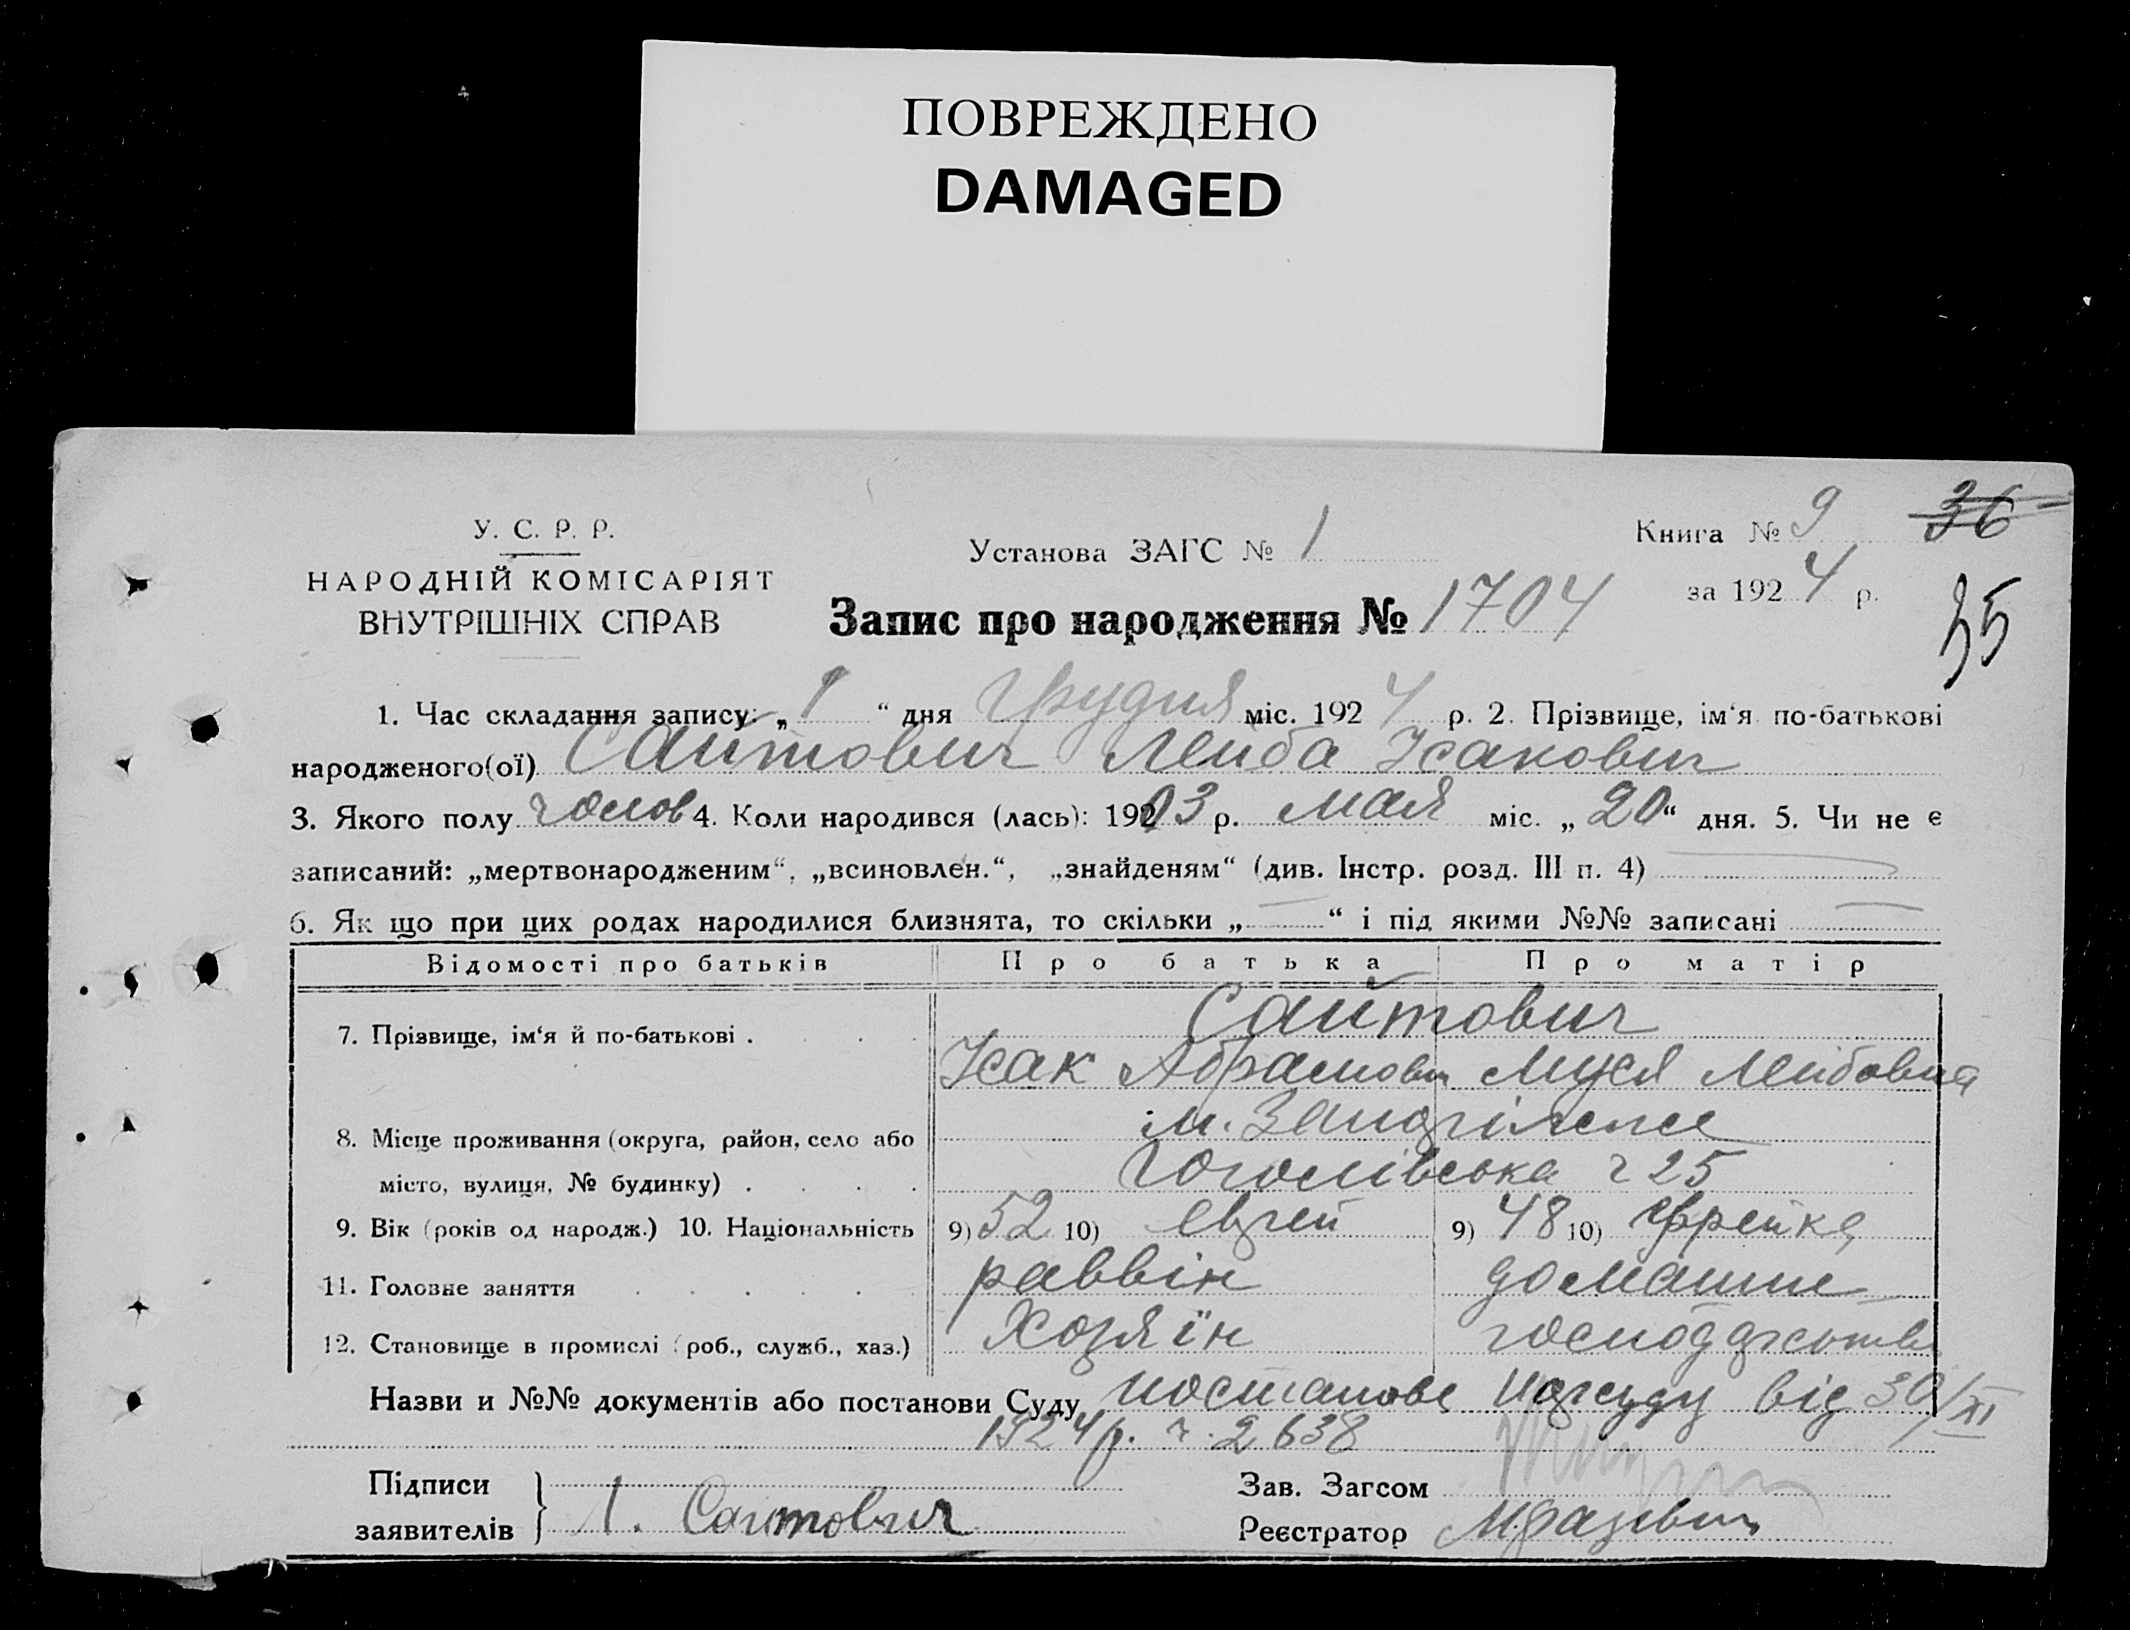 ПОВРЕЖДЕНО
DAMAGED
У. С. Р. Р.
НАРОДНІЙ КОМІСАРІЯТ
ВНУТРІШНІХ СПРАВ
Установа ЗАГС № 1
Запис про народження № 1704
Книга № 9
36
за 1924 р.
35
1. Час складання запису: „ 1 “ дня Грудня міс. 1924 р. 2. Прізвище, ім‘я по-батькові
народженого(ої) Сайтович Лейба Исакович
3. Якого полу чолов 4. Коли народився (лась): 1903 р. мая міс. „ 20 “ дня. 5. Чи не є
записаний: „мертвонародженим“, „всиновлен.“, „знайденям“ (див. Інстр. розд. III п. 4)
6. Як що при цих родах народилися близнята, то скільки „ — “ і під якими №№ записані —
Відомості про батьків Про батька Про матір
7. Прізвище, ім‘я й по-батькові . Сайтович
Исак Абрамович Муся Лейбовна
8. Місце проживання (округа, район, село або м.
місто, вулиця, № будинку) . Гоголівська ч 25
9. Вік (років од народж.) 10. Національність 9) 52 10) Єврей 9) 48 10) Єврейка
11. Головне заняття раввін домашнє
12. Становище в промислі (роб., служб., хаз.) Хозяїн господарство
Назви и №№ документів або постанови Суду постанова Нарсуду від 30/XI
1924 р. ч. 2638
Підписи
заявителів Л. Саитович
Зав. Загсом
Реєстратор